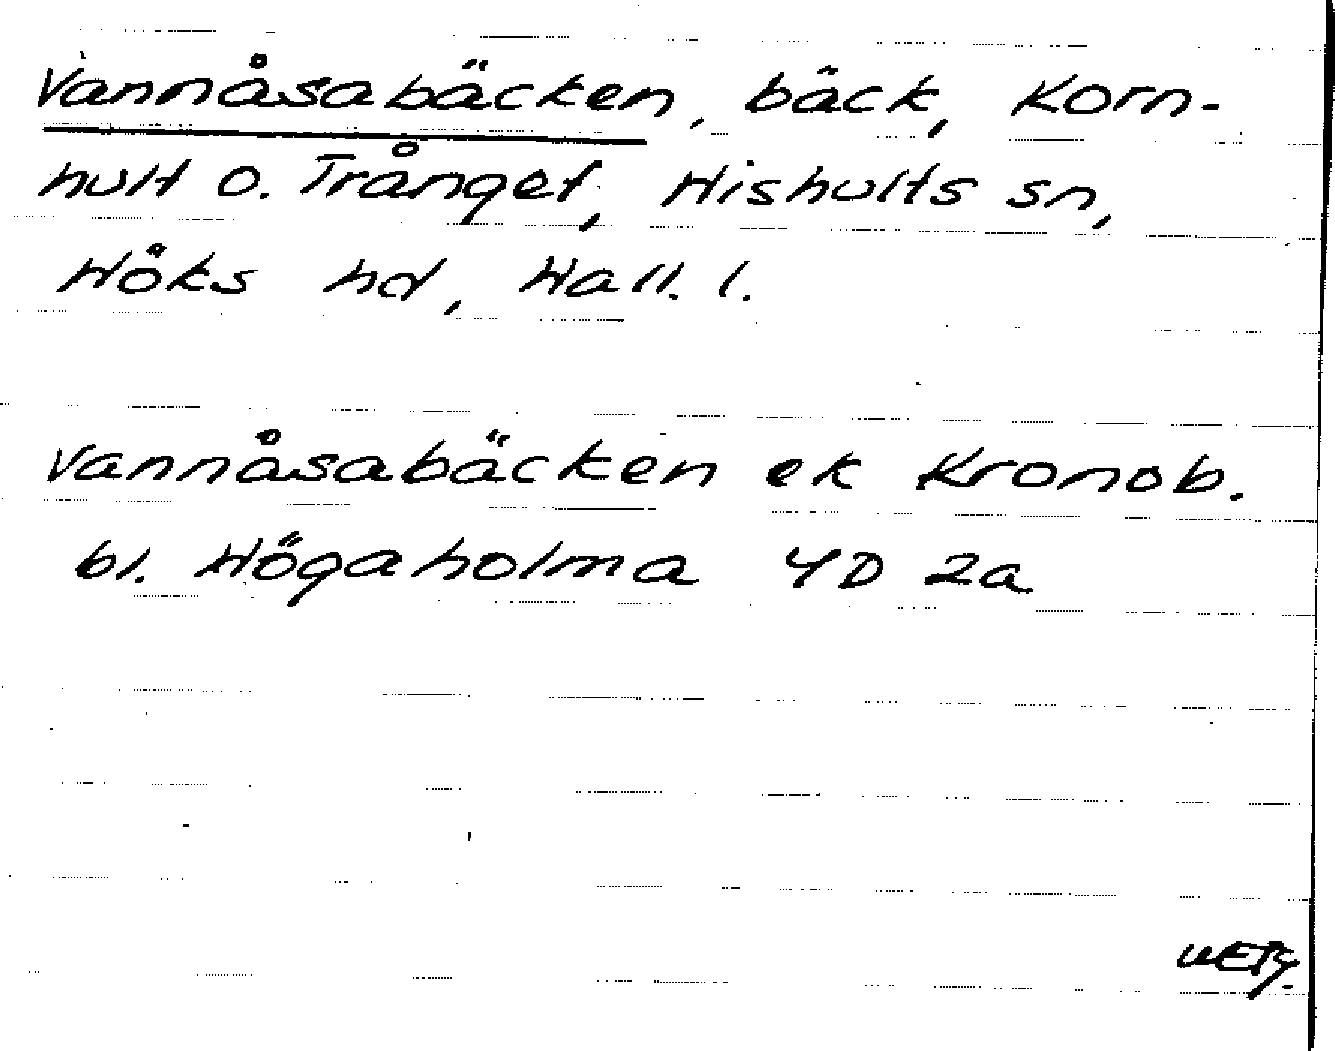 Vannåsabäcken, bäck, Korn-
hult o. Trånget, Hishults sn,
Höks hd, Hall. l.
Vannåsabäcken ek Kronob.
bl. Högaholma 4D 2a